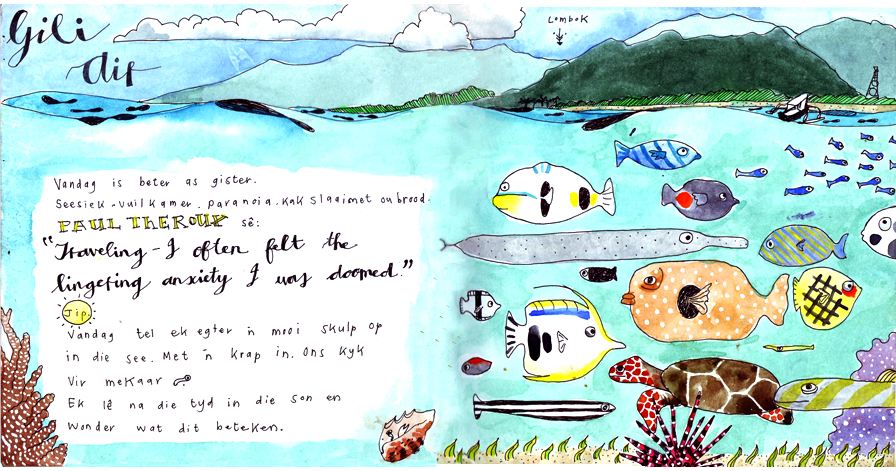 Gili
Air
Lombok
Vandag is beter as gister.
Seesiek - vuil kamer. paranoia. kak slaaimet ou brood.
PAUL THEROUX sê:
"Traveling - I often felt the
lingering anxiety I was doomed."
Jip.
Vandag tel ek egter 'n mooi skulp op
in die see. Met 'n krap in. Ons kyk
Vir mekaar
Ek lê na die tyd in die son en
wonder wat dit beteken.